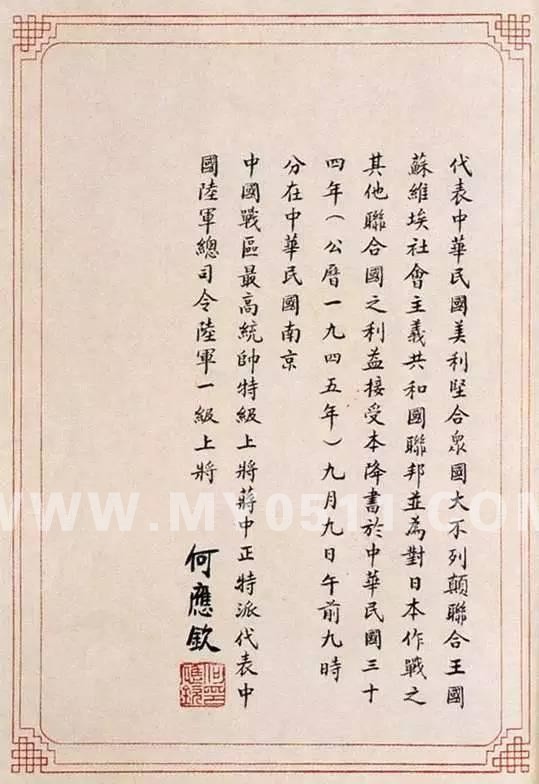 代表中華民國美利堅合衆國大不列顛聯合王國
蘇維埃社會主義共和國聯邦並為對日本作戰之
其他聯合國之利益接受本降書於中華民國三十
四年（公曆一九四五年）九月九日午前九時
分在中華民國南京
中國戰區最高統帥特級上將蔣中正特派代表中
國陸軍總司令陸軍一級上將
何應欽
WWW.MY0511.COM